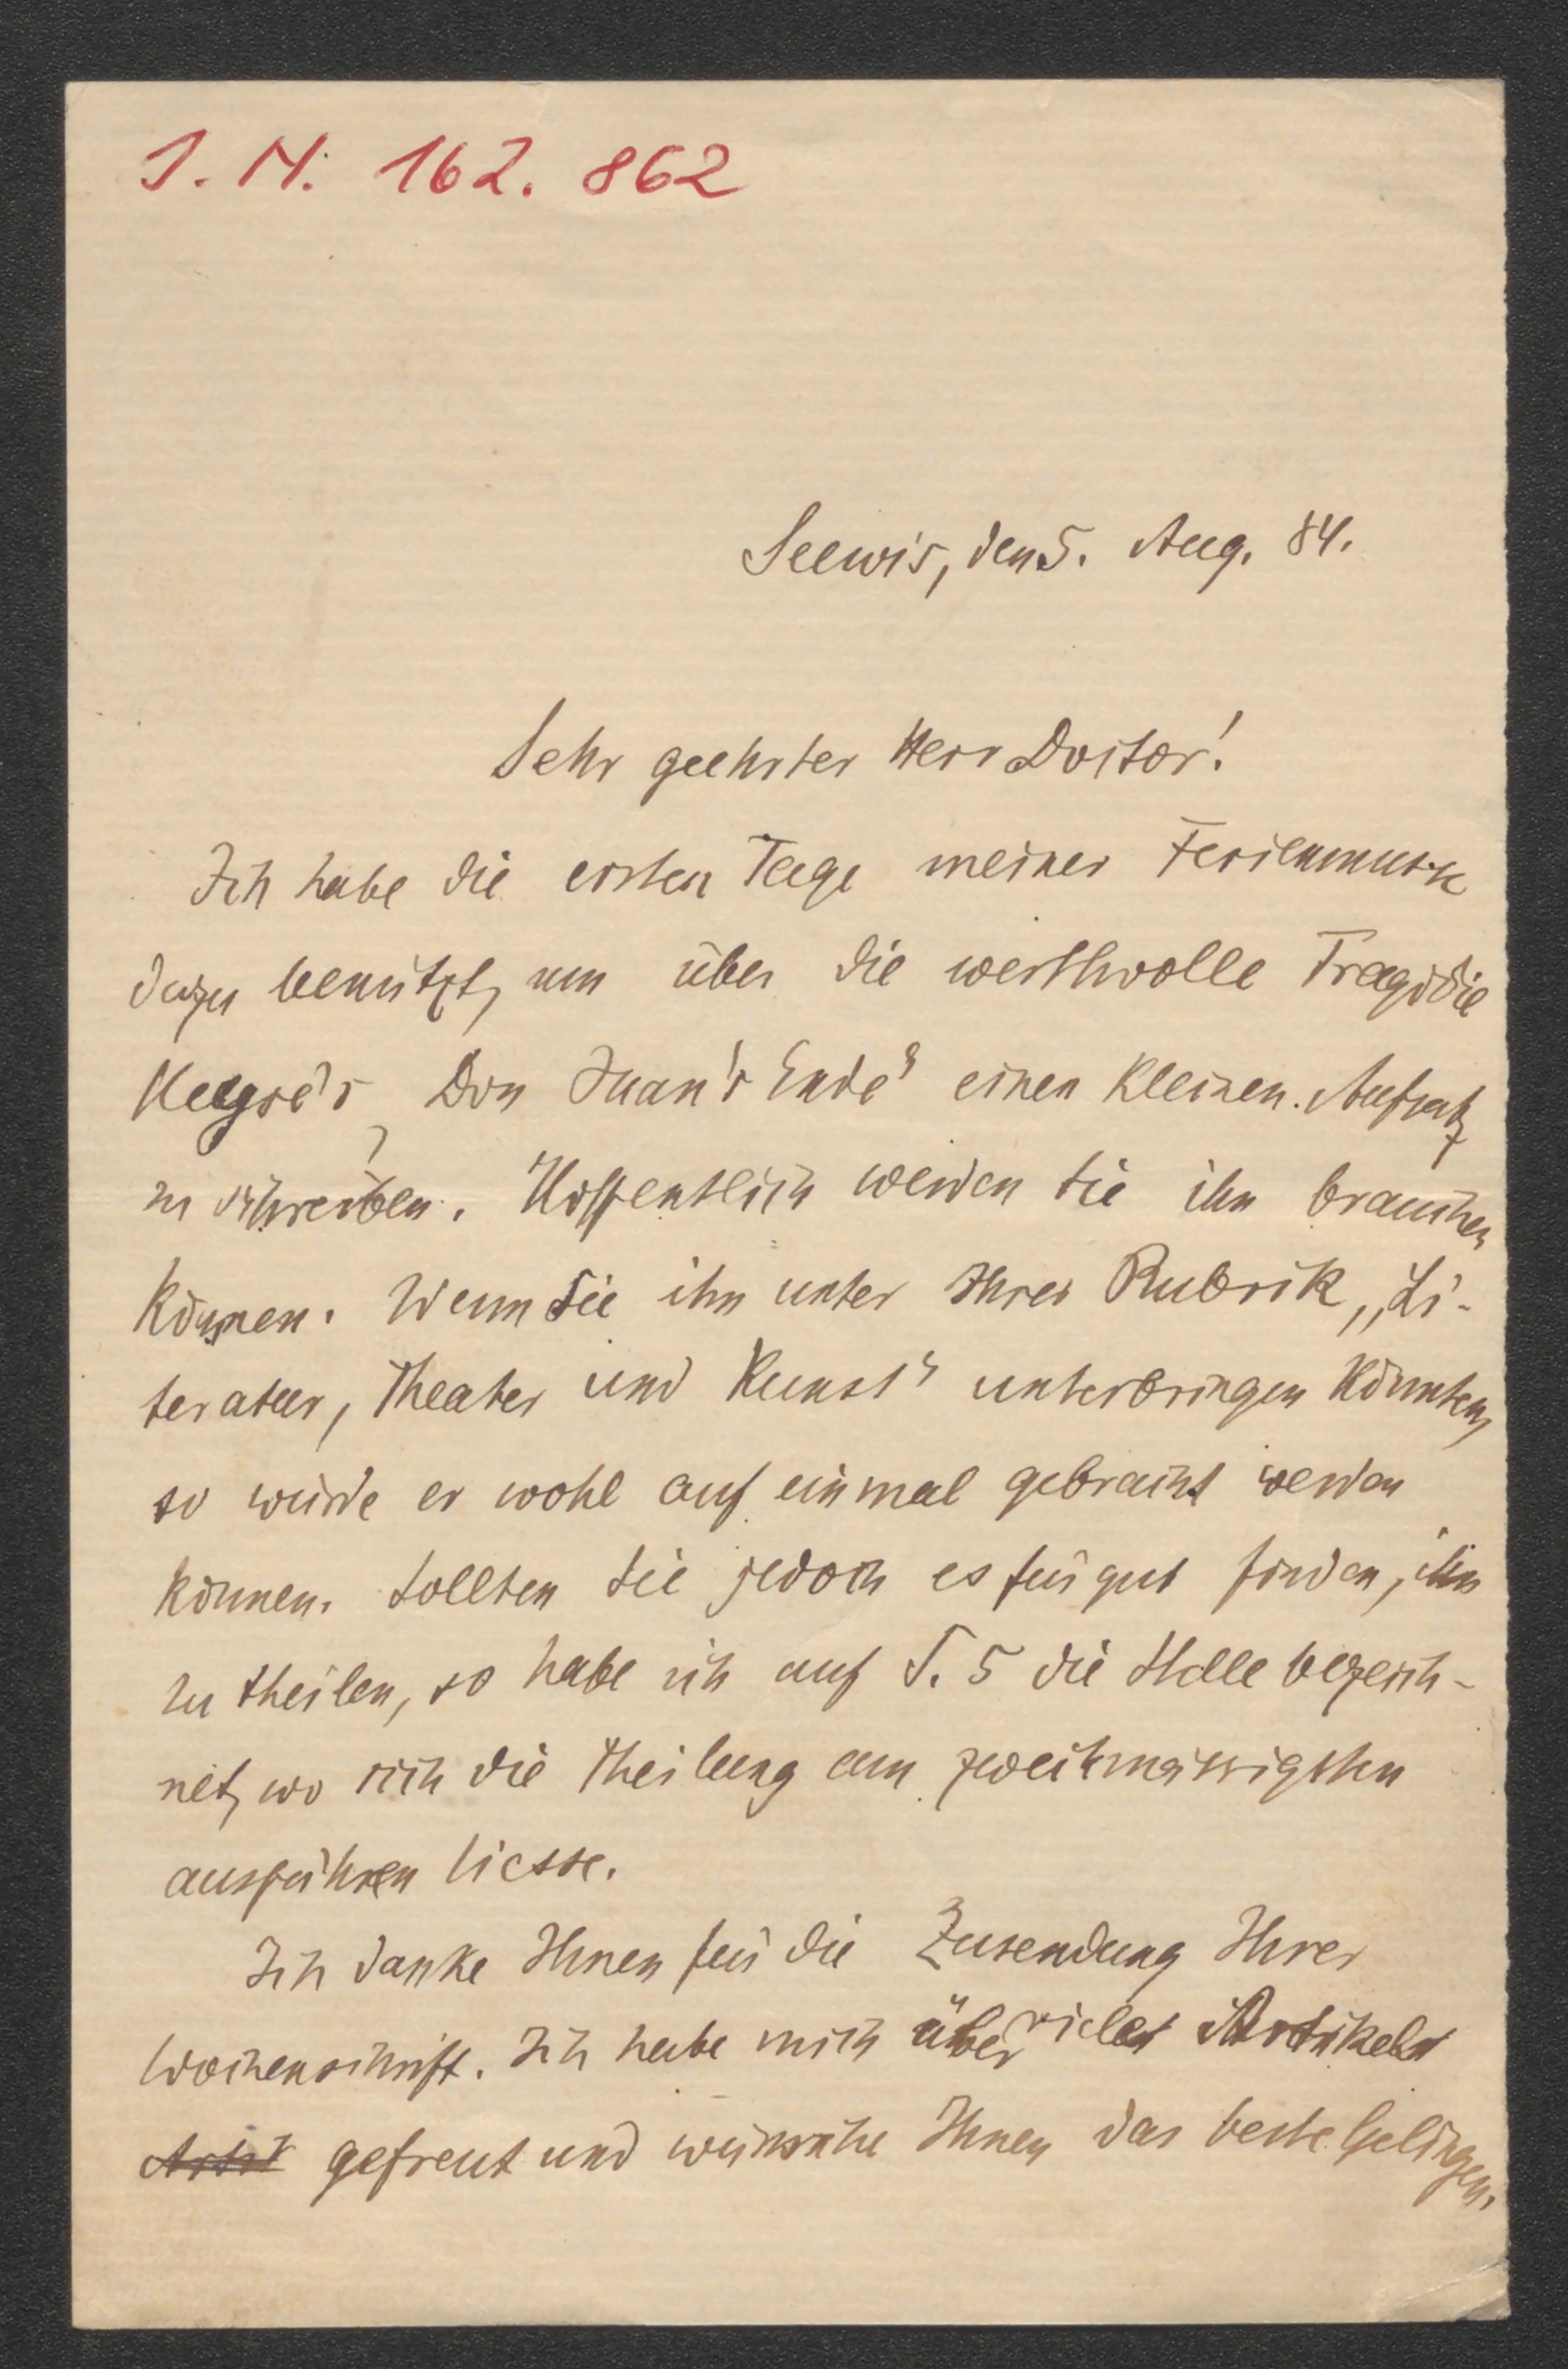 I. N. 162. 862
Seewis, den 5. Aug. 84.
Sehr geehrter Herr Doctor!
Ich habe die ersten Tage meiner Ferienmusse
dazu benützt, um über die werthvolle Tragödie
"Don Juan's Ende" einen kleinen Aufsatz
zu schreiben. Hoffentlich werden Sie ihn brauchen
können. Wenn Sie ihn unter Ihrer Rubrik „Li-
teratur, Theater und Kunst" unterbringen könnten,
so würde er wohl auf einmal gebracht werden
können. Sollten Sie jedoch es für gut finden, ihn
zu theilen, so habe ich auf S. 5 die Stelle bezeich-
net, wo sich die Theilung am zweckmässigsten
ausführen liesse.
Ich danke Ihnen für die Zusendung Ihrer
Wochenschrift. Ich habe mich über viele Artikel
gefreut und wünsche Ihnen das beste Gelingen.